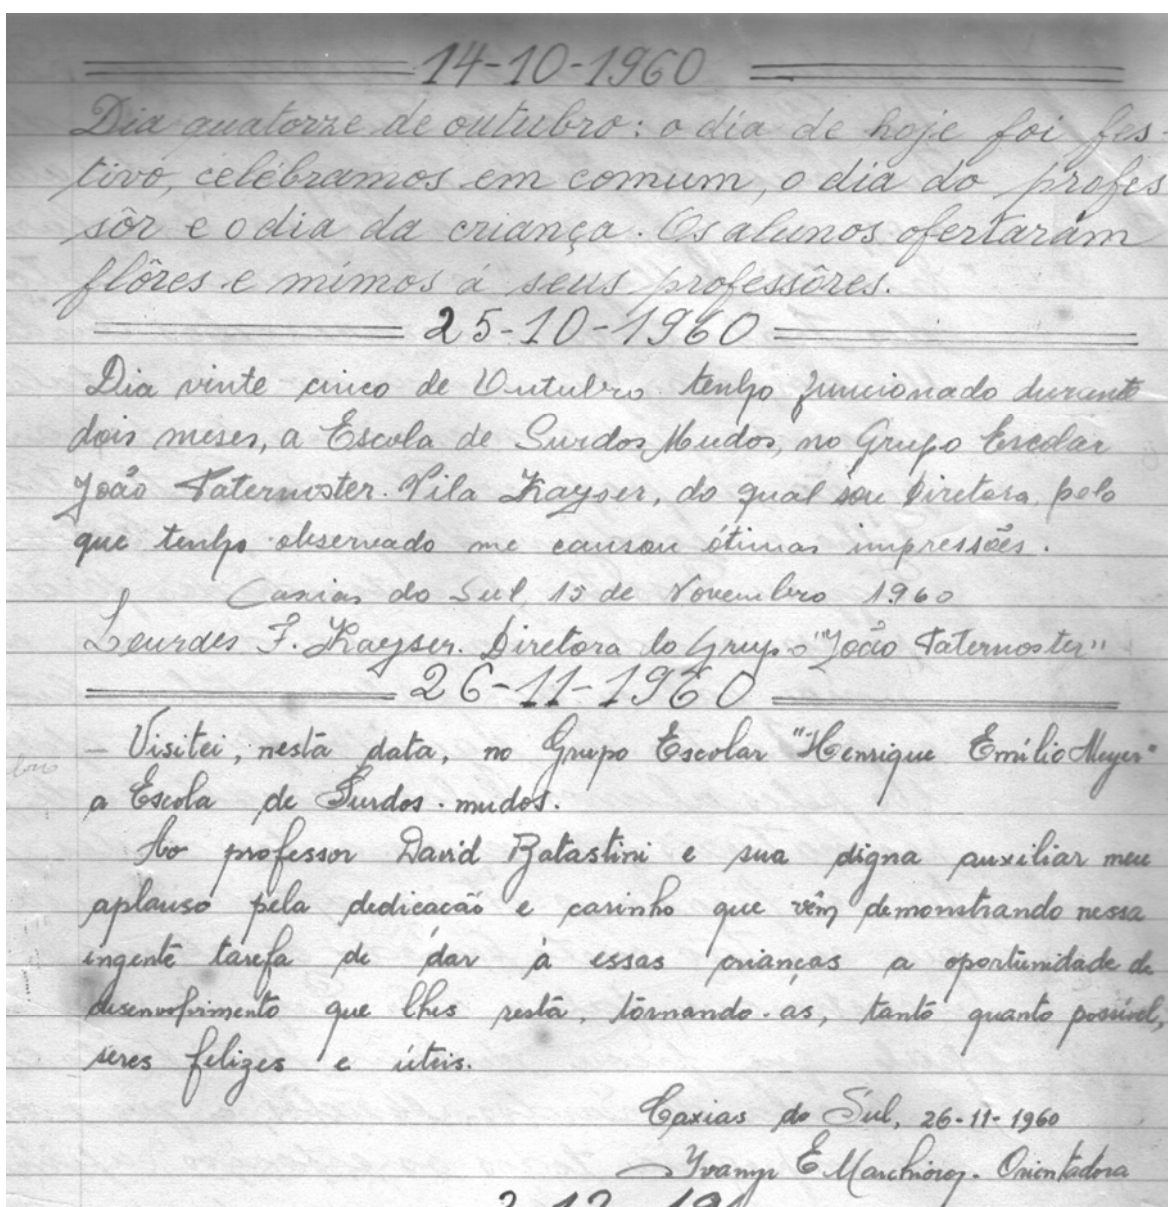 14-10-1960
Dia quatorze de outubro: o dia de hoje foi fes
tivo, celebramos em comum, o dia do profes
sôr e o dia da criança. Os alunos ofertaram
flôres e mimos á seus professôres.
25-10-1960
Dia vinte cinco de Outubro tenho funcionado durante
dois meses, a Escola de Surdos Mudos, no Grupo Escolar
João Paternoster. Vila Kayser, do qual sou Diretora, pelo
que tenho observado me causou ótimas impressões.
Caxias do Sul, 15 de Novembro 1960
Lourdes F. Kayser. Diretora do Grupo "João Paternoster"
26-11-1960
- Visitei, nesta data, no Grupo Escolar "Henrique Emílio Meyer"
a Escola de Surdos-mudos.
Ao professor David Batastini e sua digna auxiliar meu
aplauso pela dedicacão e carinho que vêm demonstrando nessa
ingente tarefa de dar à essas crianças a oportunidade de
desenvolvimento que lhes resta, tornando-as, tanto quanto possível,
seres felizes e úteis.
Caxias do Sul, 26-11-1960
E. Marchioro - Orientadora